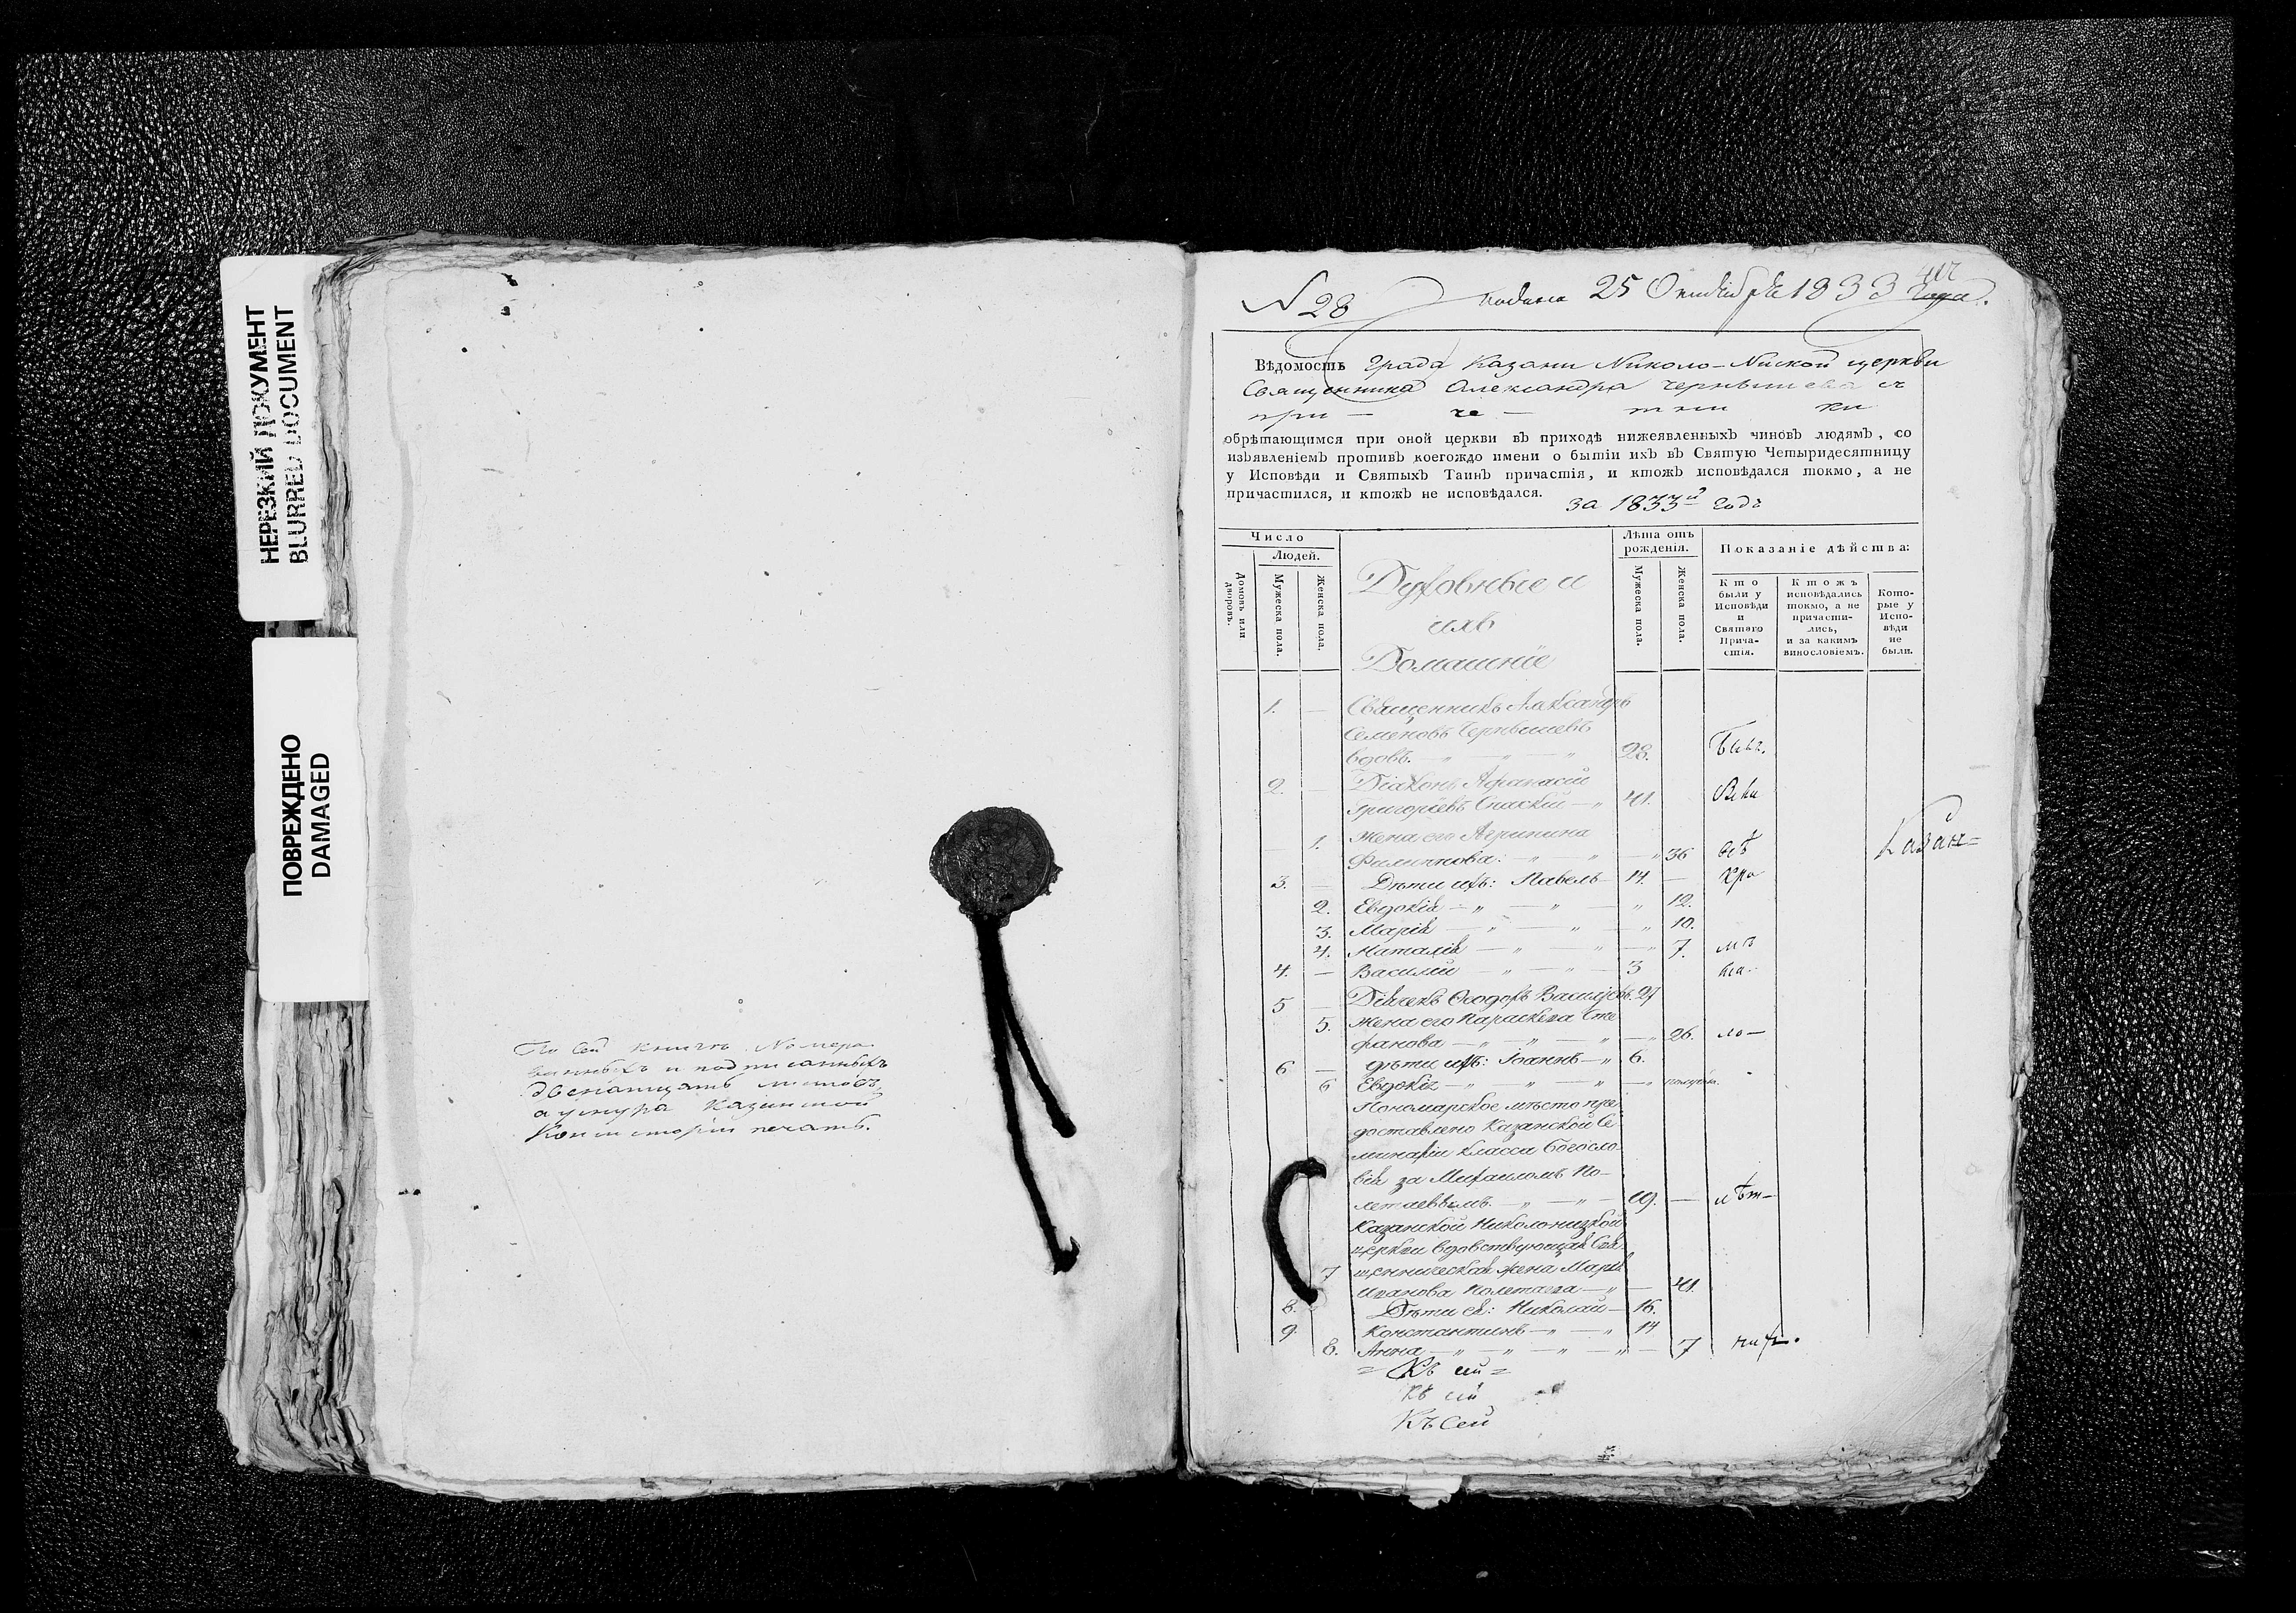 НЕРЕЗКИЙ ДОКУМЕНТ
BLURRED DOCUMENT
ПОВРЕЖДЕНО
DAMAGED
По сей книгѣ Номеро
ванныхъ и подписанныхъ
двенатцать листовъ,
а у шнура Казанской
Консисторiи печать.
417
N 28 Подана 25 Октября 1833 года.
Вѣдомость Града Казани Николо-Ниской церкви
Священника Александра Чернышева съ
при — че — тни ки
обрѣтающимся при оной церкви въ приходѣ нижеявленныхъ чиновъ людямъ, со
изъявленіемъ противъ коегождо имени о бытіи ихъ въ Святую Четыридесятницу
у Исповѣди и Святыхъ Таинъ причастія, и ктожъ исповѣдался токмо, а не
причастился, и ктожъ не исповѣдался.
за 1833й годъ
Число
Людей.
Домовъ или дворовъ.
Мужеска пола.
Женска пола.
Духовные и
ихъ
Домашніе
Лѣта отъ
рожденія.
Мужеска пола.
Женска пола.
Показаніе дѣйства:
Кто
были у
Исповѣди
и
Святаго
Прича-
стія.
Ктожъ
исповѣдались
токмо, а не
причасти-
лись,
и за какимъ
винословіемъ.
Кото-
рые у
Испо-
вѣди
не
были.
1. — Священникъ Александръ
Семеновъ Чернышевъ
вдовъ. — „ — „ 28. Были.
2. — Діаконъ Афанасій
Григорьевъ Спаскій — „ 41.
1. Жена его Агрипина
Филиппова: — „ — „ 36
3. — Дѣти ихъ: Павелъ — 14. —
2. Евдокія — „ — „ — „ 12.
3. Марія — „ — „ — „ 10.
4. Наталія — „ — „ — „ 7.
4. — Василій — „ — „ — 3
Казан=
5 — Дьячекъ Ѳеодоръ Васильевъ. 27
5. Жена его Параскева Сте
фанова — „ — „ — „ 26. ло—
6 — дѣти ихъ: Іоаннъ — „ 6.
6 Евдокія — „ — „ — „
Пономарское мѣсто пре
доставлено Казанской Се
минаріи класса Богосло
вія за Михаиломъ По-
летаевымъ — „ — „ — 19. —
Казанской Николонизкой
церкви вдовствующая Свя
7 щенническая жена Марія
Иванова Полетаева — „ — 41.
8. Дѣти ея: Николай — 16.
9. Константинъ — „ — „ 14
8. Анна — „ — „ — „ — „ — 7
= Къ сей =
Къ сей
Къ Сей